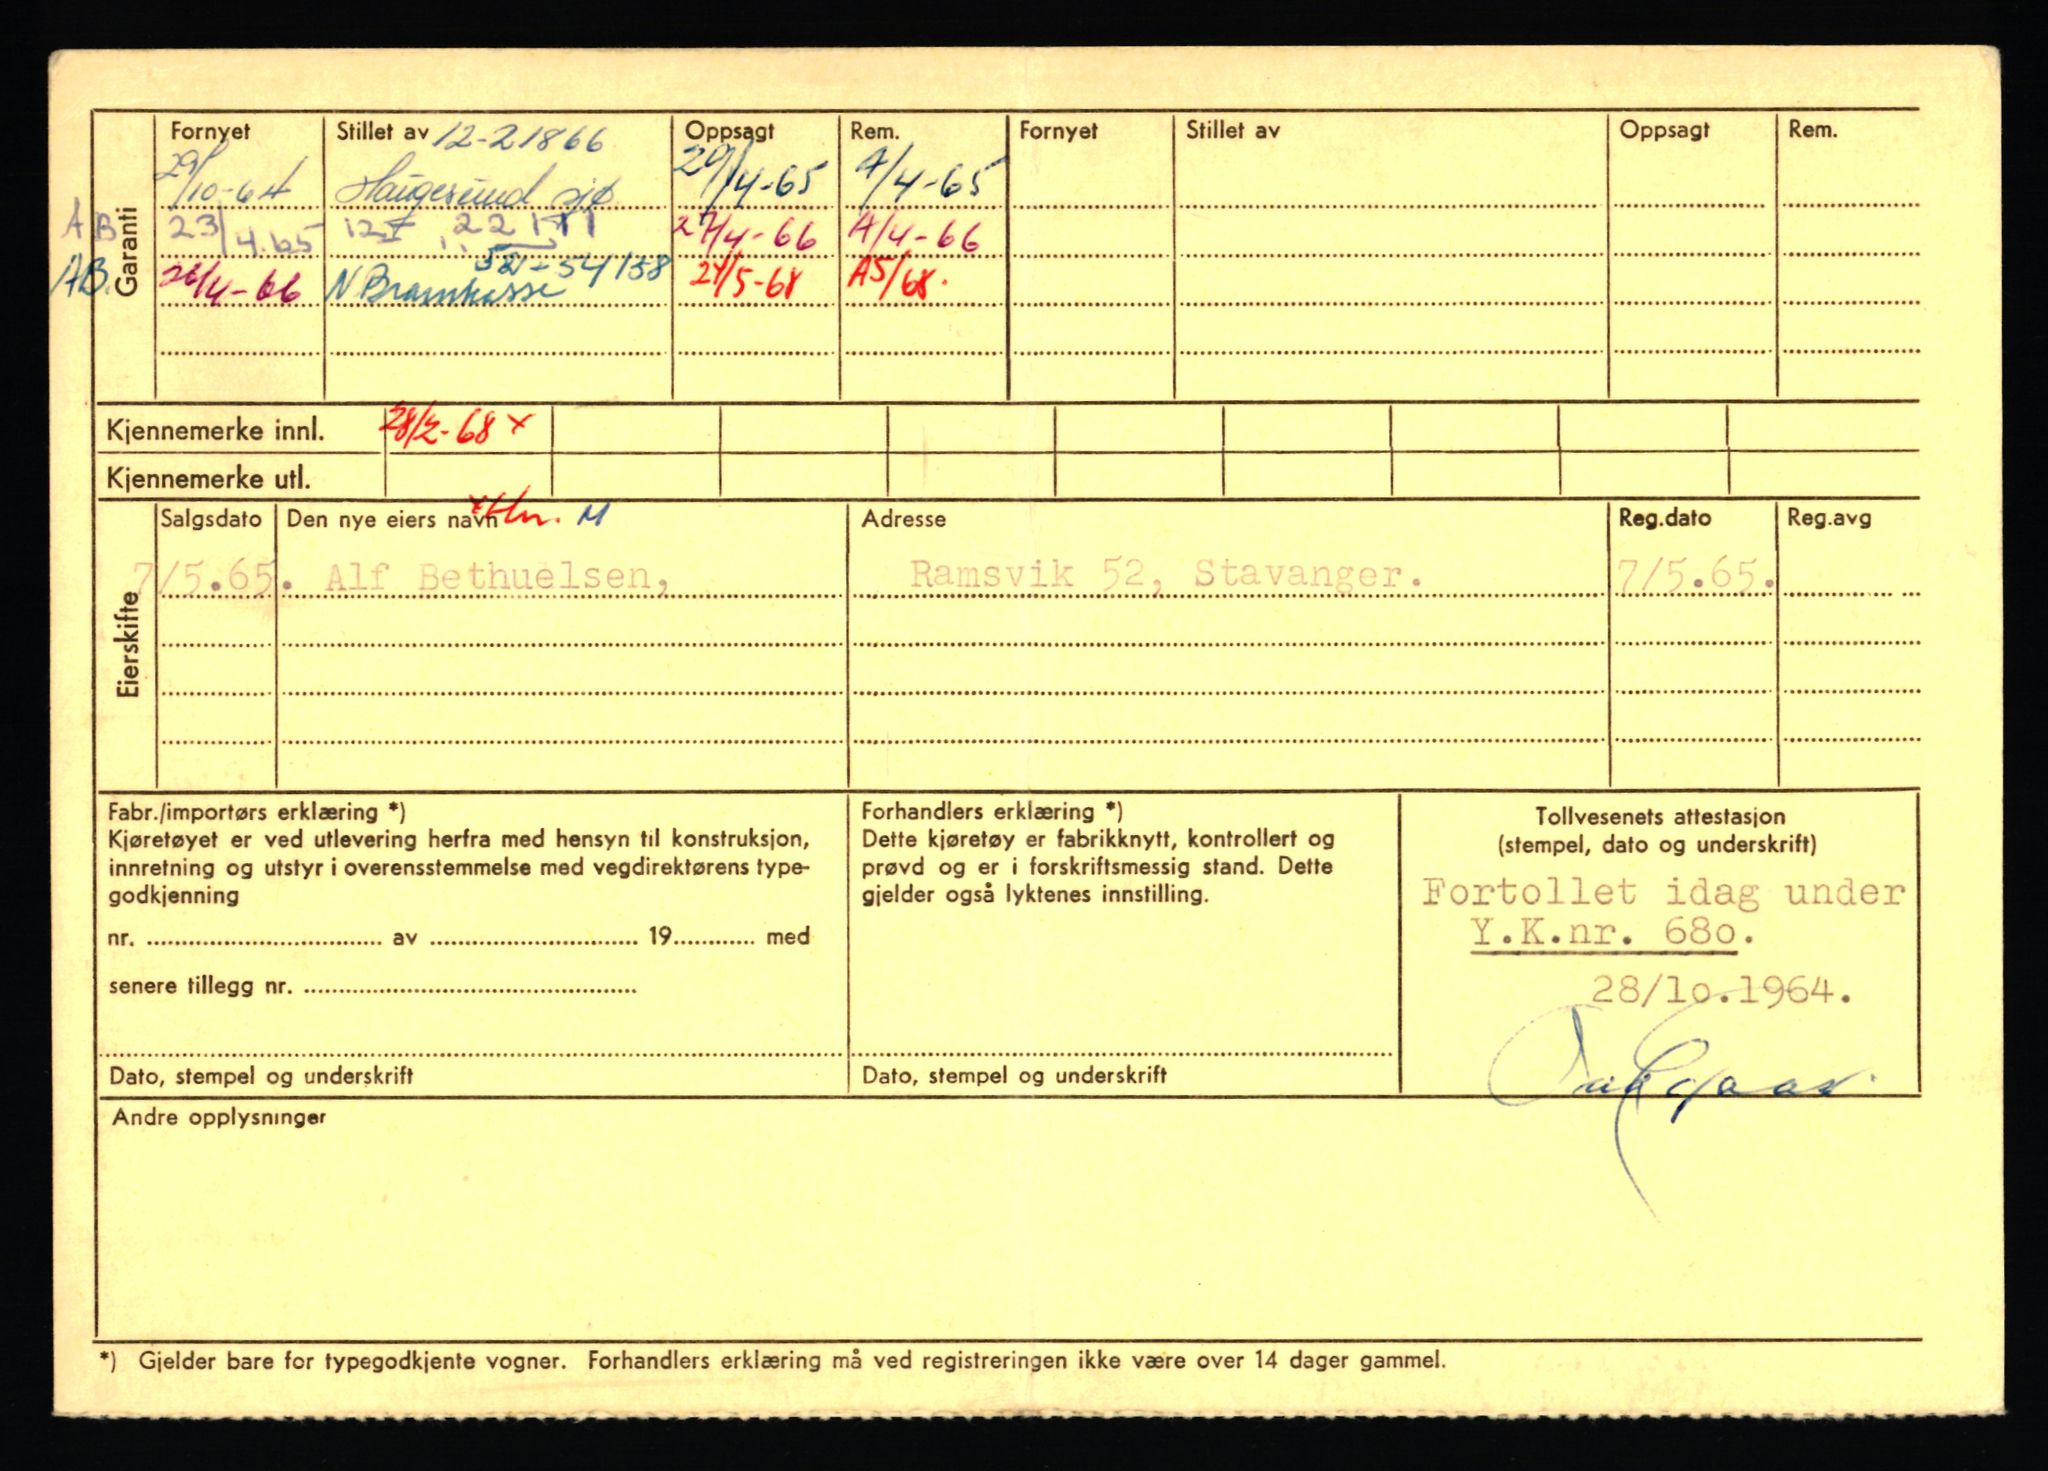 Fornyet Stillet av 12-21866 Oppsagt Rem. Fornyet Stillet av Oppsagt Rem.
29/10-64 Haugesund sjø 29/4-65 A/4-65
Garanti
AB 23/4.65 22 111 27/4-66 A/4-66
AB. 26/4-66 N Brannkasse 54158 24/5-68 A5/68.
Kjennemerke innl. 28/2-68 x
Kjennemerke utl.
Eierskifte
Salgsdato Den nye eiers navn M Adresse Reg.dato Reg.avg
7/5.65. Alf Bethuelsen, Ramsvik 52, Stavanger. 7/5.65.
Fabr./importørs erklæring *)
Kjøretøyet er ved utlevering herfra med hensyn til konstruksjon,
innretning og utstyr i overensstemmelse med vegdirektørens type-
godkjenning
nr. ........ av ........ 19........ med
senere tillegg nr. ........
Dato, stempel og underskrift
Forhandlers erklæring *)
Dette kjøretøy er fabrikknytt, kontrollert og
prøvd og er i forskriftsmessig stand. Dette
gjelder også lyktenes innstilling.
Dato, stempel og underskrift
Tollvesenets attestasjon
(stempel, dato og underskrift)
Fortollet idag under
Y.K.nr. 68o.
28/1o.1964.
Andre opplysninger
*) Gjelder bare for typegodkjente vogner. Forhandlers erklæring må ved registreringen ikke være over 14 dager gammel.